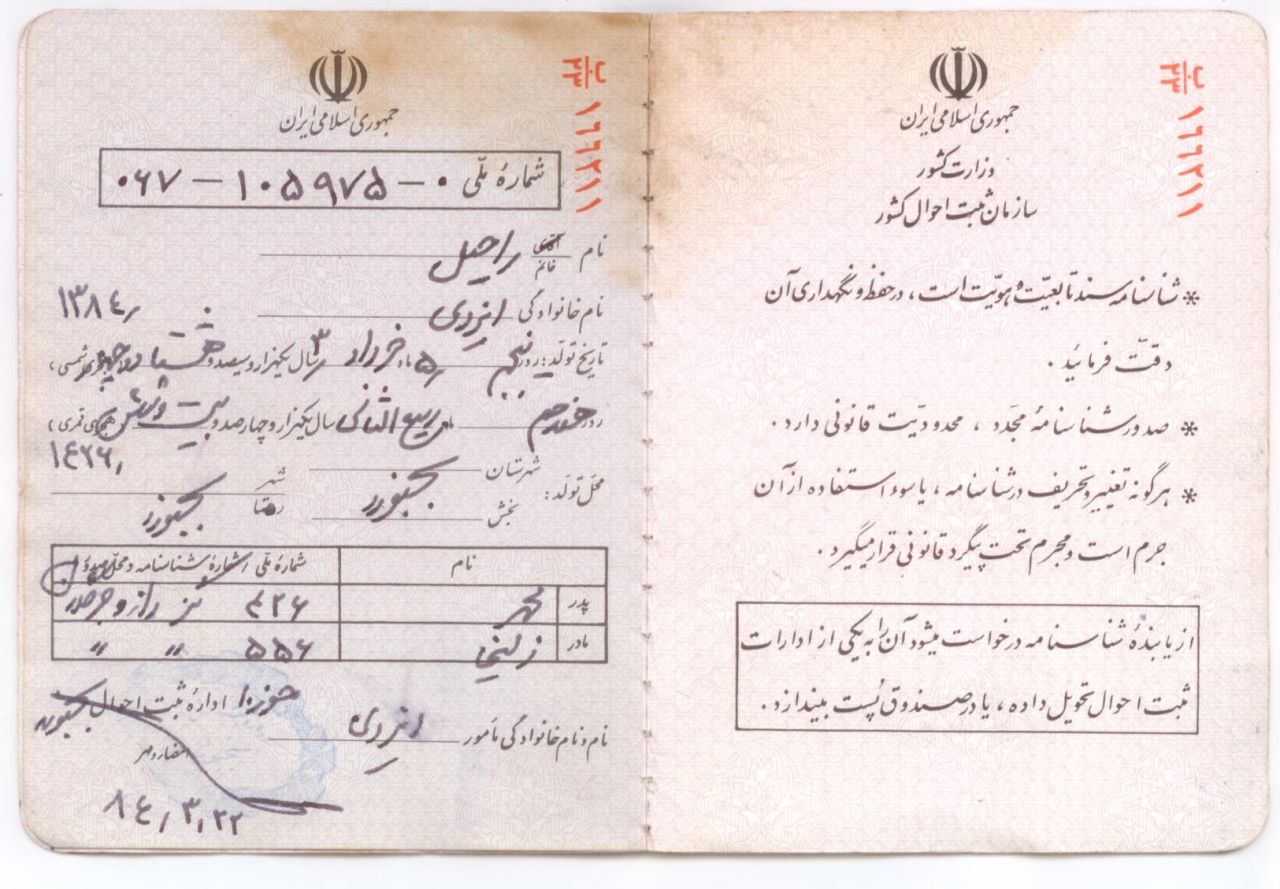 ب
۲۳
۱۶۶۲۱۱
جمهوری اسلامی ایران
وزارت کشور
سازمان ثبت احوال کشور
* شناسنامه سند تابعیت و هویت است ، در حفظ و نگهداری آن
دقت فرمائید .
* صدور شناسنامهٔ مجدد ، محدودیت قانونی دارد .
* هرگونه تغییر و تحریف در شناسنامه ، یا سوء استفاده از آن
جرم است و مجرم تحت پیگرد قانونی قرار میگیرد .
از یابندهٔ شناسنامه درخواست میشود آن را به یکی از ادارات
ثبت احوال تحویل داده ، یا در صندوق پست بیندازد .
ب
۲۳
۱۶۶۲۱۱
جمهوری اسلامی ایران
شمارهٔ ملّی ۰۶۷ – ۱۰۵۹۷۵ – ۰
نام آقای خانم راحیل
نام خانوادگی ایزدی
۱۳۸۴/
تاریخ تولد : روز پنجم ۵/ ماه خرداد ۳/ سال یکهزار و سیصد و هشتاد و چهار هجری شمسی ،
روز هفدهم ماه ربیع الثانی سال یکهزار و چهارصد و بیست و شش هجری قمری ،
۱۴۲۶/
محل تولد : شهرستان بجنورد شهر
بخش روستا بجنورد
نام شمارهٔ ملی / شمارهٔ شناسنامه و محل صدور
پدر ۴۲۶ راز و جرگلان
مادر زلیخا ۵۵۶ " "
نام و نام خانوادگی مأمور ایزدی حوزه ۱ ادارهٔ ثبت احوال بجنورد
امضاء و مهر
۸۴/۳/۲۲